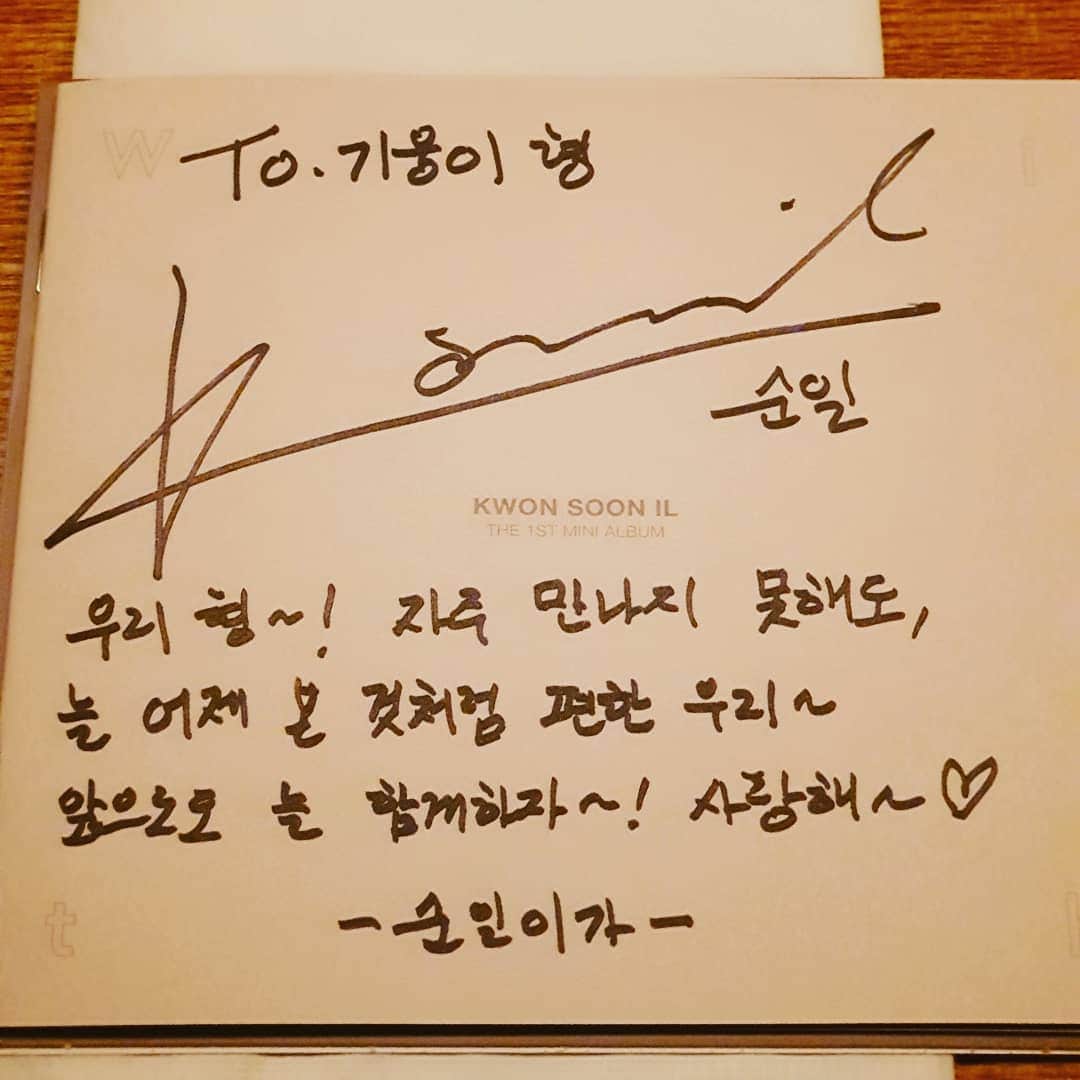 W
To. 기웅이 형
i
K soonil
순일
KWON SOON IL
THE 1ST MINI ALBUM
우리 형~! 자주 만나지 못해도,
늘 어제 본 것처럼 편한 우리~
앞으로도 늘 함께하자~! 사랑해~♡
t
-순일이가-